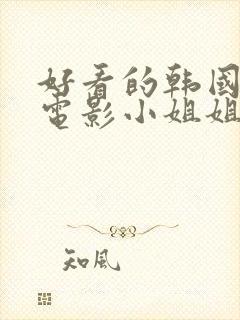 好看的韩國
電影小姐姐
知風